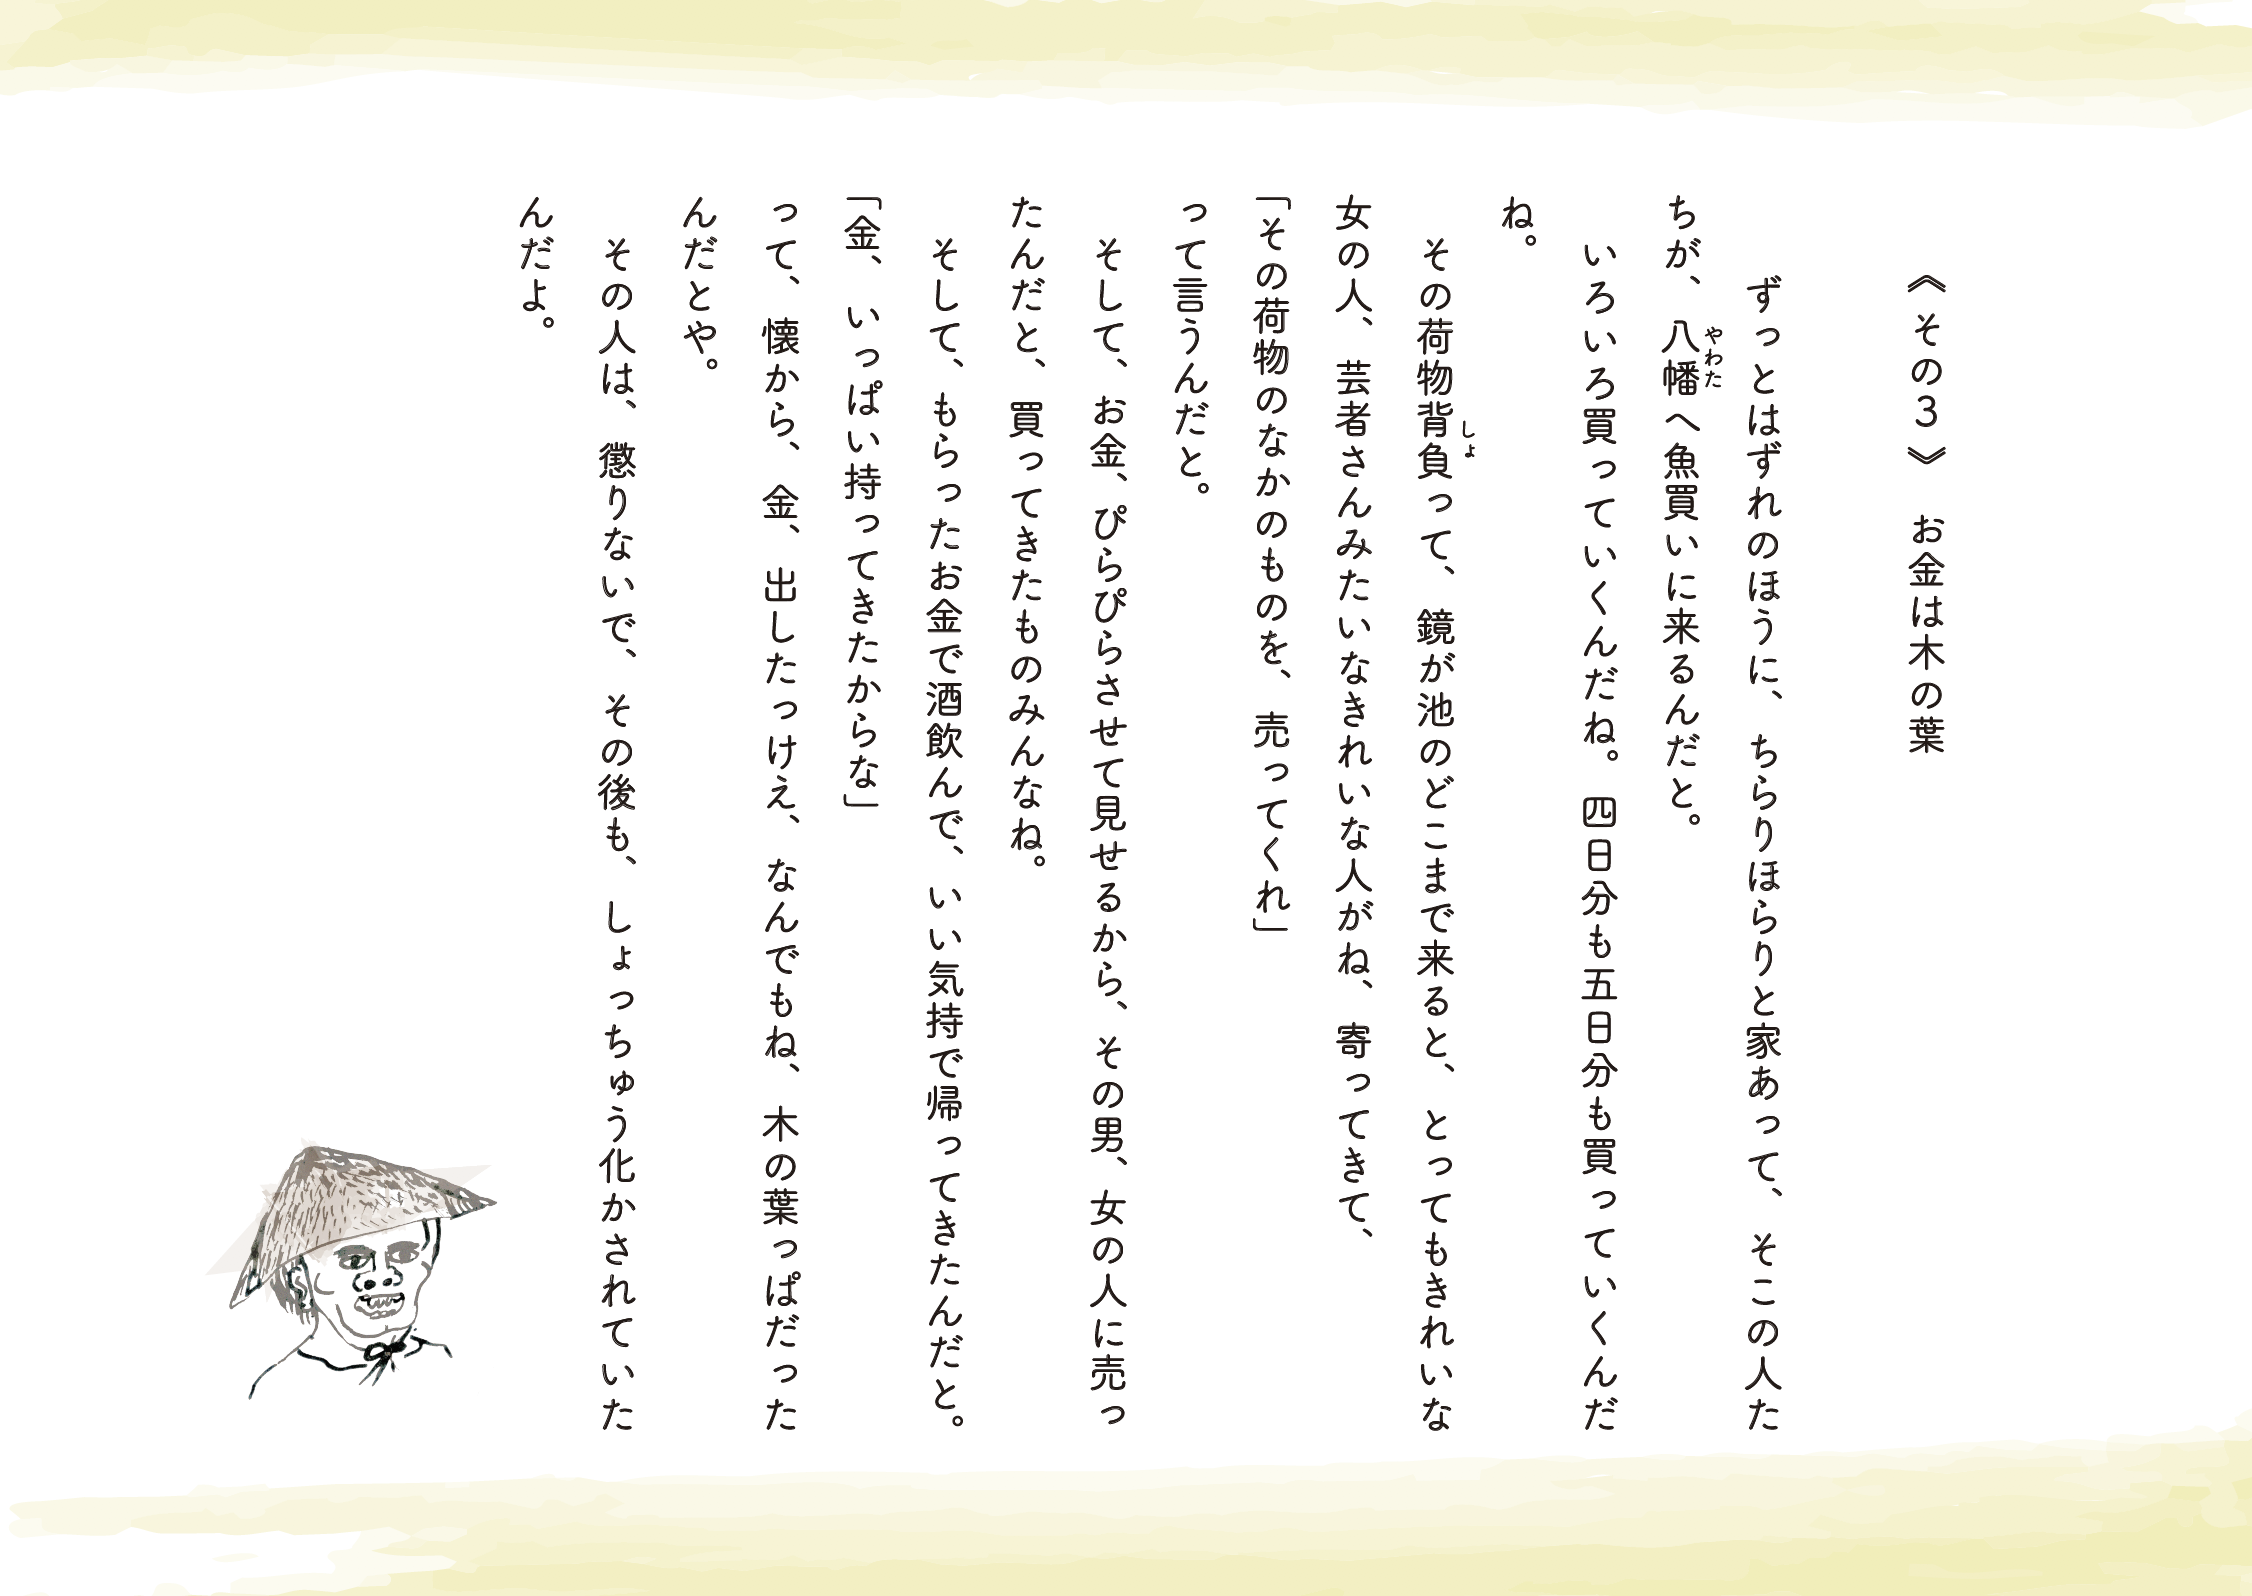 《その３》　お金は木の葉
ずっとはずれのほうに、ちらりほらりと家あって、そこの人た
ちが、八幡へ魚買いに来るんだと。
やわた
いろいろ買っていくんだね。四日分も五日分も買っていくんだ
ね。
その荷物背負って、鏡が池のどこまで来ると、とってもきれいな
しょ
女の人、芸者さんみたいなきれいな人がね、寄ってきて、
「その荷物のなかのものを、売ってくれ」
って言うんだと。
そして、お金、ぴらぴらさせて見せるから、その男、女の人に売っ
たんだと、買ってきたものみんなね。
そして、もらったお金で酒飲んで、いい気持で帰ってきたんだと。
「金、いっぱい持ってきたからな」
って、懐から、金、出したっけえ、なんでもね、木の葉っぱだった
んだとや。
その人は、懲りないで、その後も、しょっちゅう化かされていた
んだよ。